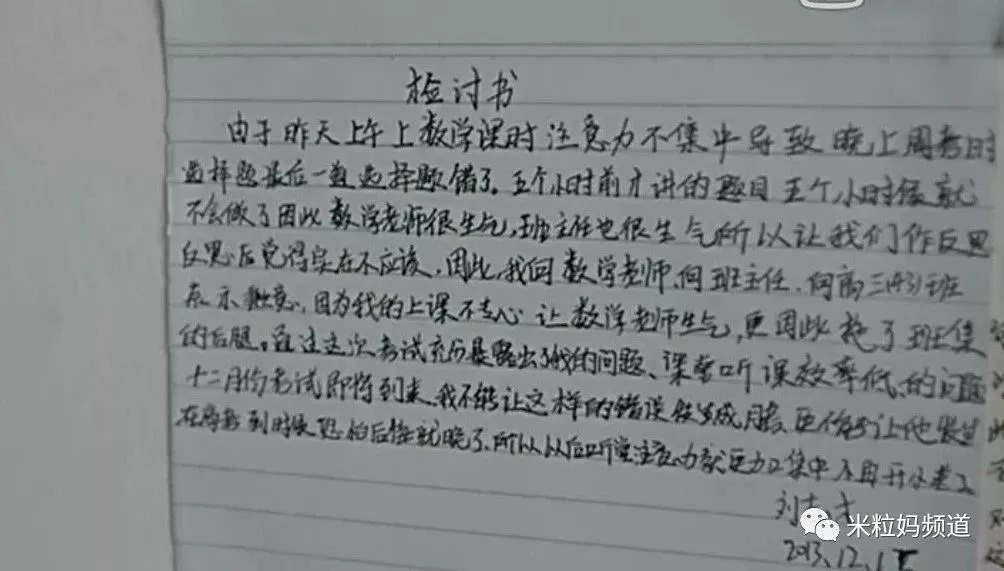 检讨书
由于昨天上午上数学课时注意力不集中导致晚上周考时
选择题最后一道选择题错了。五个小时前才讲的题目五个小时候就
不会做了因此数学老师很生气,班主任也很生气所以让我们作反思
反思后觉得实在不应该。因此,我向数学老师、向班主任、向高三(43)班
表示歉意,因为我的上课不专心让数学老师生气,更因此拖了班集
的后腿。通过这次考试充分暴露出了我的问题、课堂听课效率低的问题
十二月份考试即将到来、我不能让这样的错误 成 让他发生
在高考到时候恐怕后悔就晚了、所以以后听课注意力就更加集中不再开小差了
刘
2013.12.1
米粒妈频道